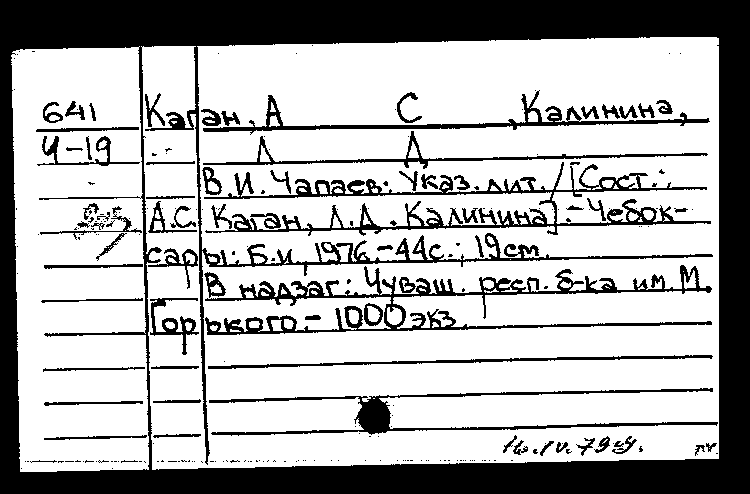 641 Каган, А С , Калинина,
Ч-19 Л Д
В.И. Чапаев: Указ. лит. / [Сост.:
А.С. Каган, Л.Д. Калинина].- Чебок-
сары: Б.и., 1976.-44с.; 19см.
В надзаг.: Чуваш. респ. б-ка им. М.
Горького.- 1000 экз.
16.IV.79г.